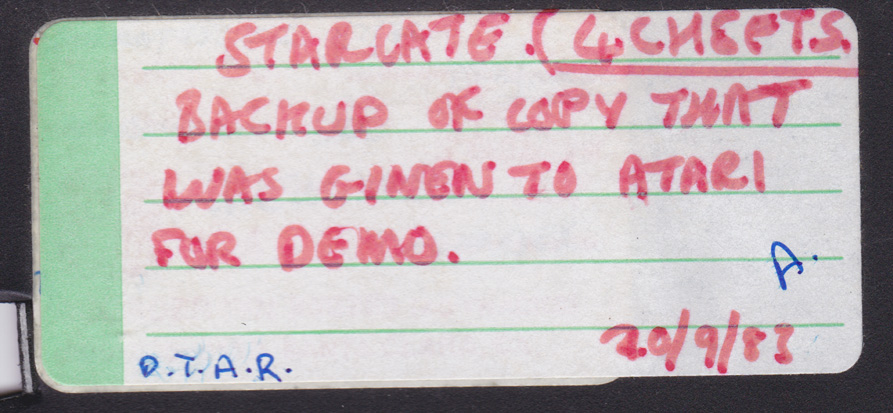 STARGATE. (4 CHSETS.
BACKUP OF COPY THAT
WAS GINEN TO ATARI
FOR DEMO.
A.
20/9/83
D.T.A.R.